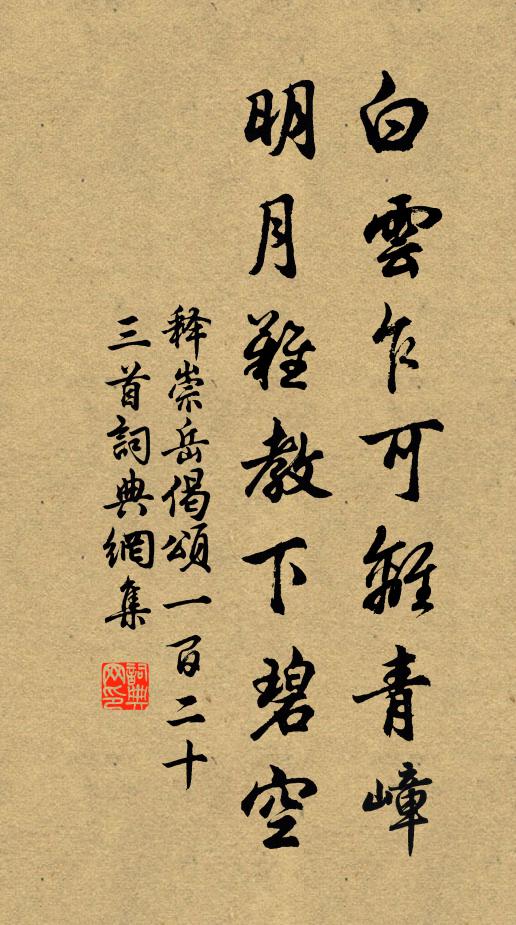 白雲乍可離青嶂
明月難教下碧空
释崇岳偈頌一百二十
三首詞典網集
詞典
网印